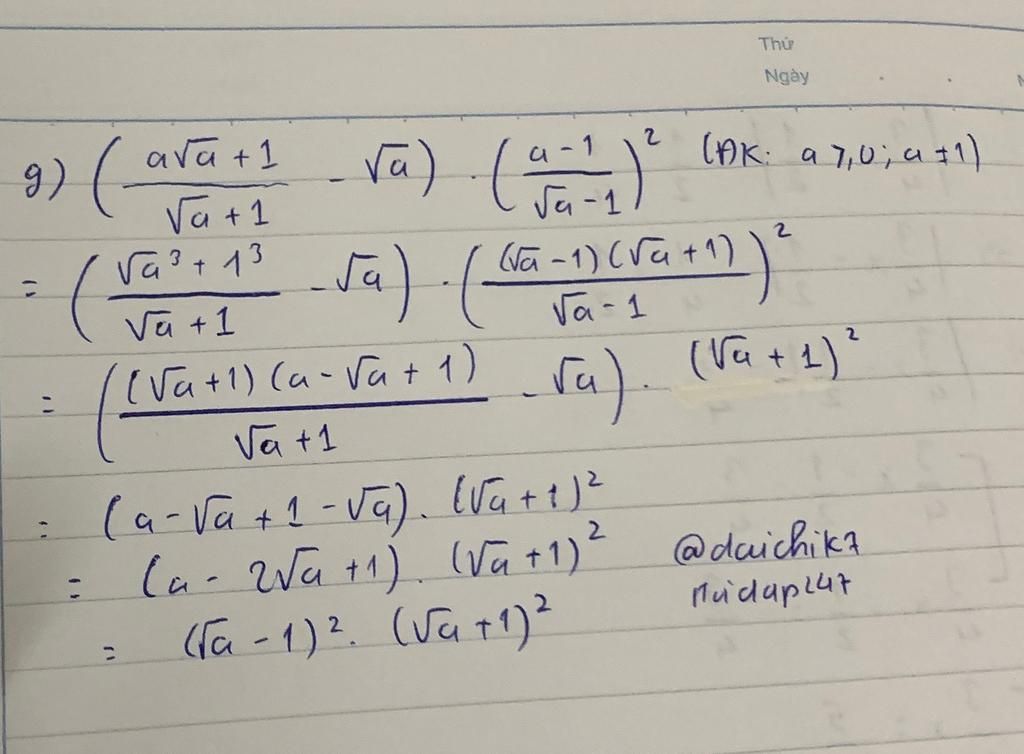 Thứ
Ngày
g) ( (a√a + 1)/(√a + 1) - √a ) . ( (a - 1)/(√a - 1) )² (ĐK: a ⩾ 0; a ≠ 1)
= ( (√a³ + 1³)/(√a + 1) - √a ) . ( ((√a - 1)(√a + 1))/(√a - 1) )²
= ( ((√a + 1)(a - √a + 1))/(√a + 1) - √a ) . (√a + 1)²
= (a - √a + 1 - √a) . (√a + 1)²
= (a - 2√a + 1) . (√a + 1)² @daichik7
hoidap247
= (√a - 1)² . (√a + 1)²